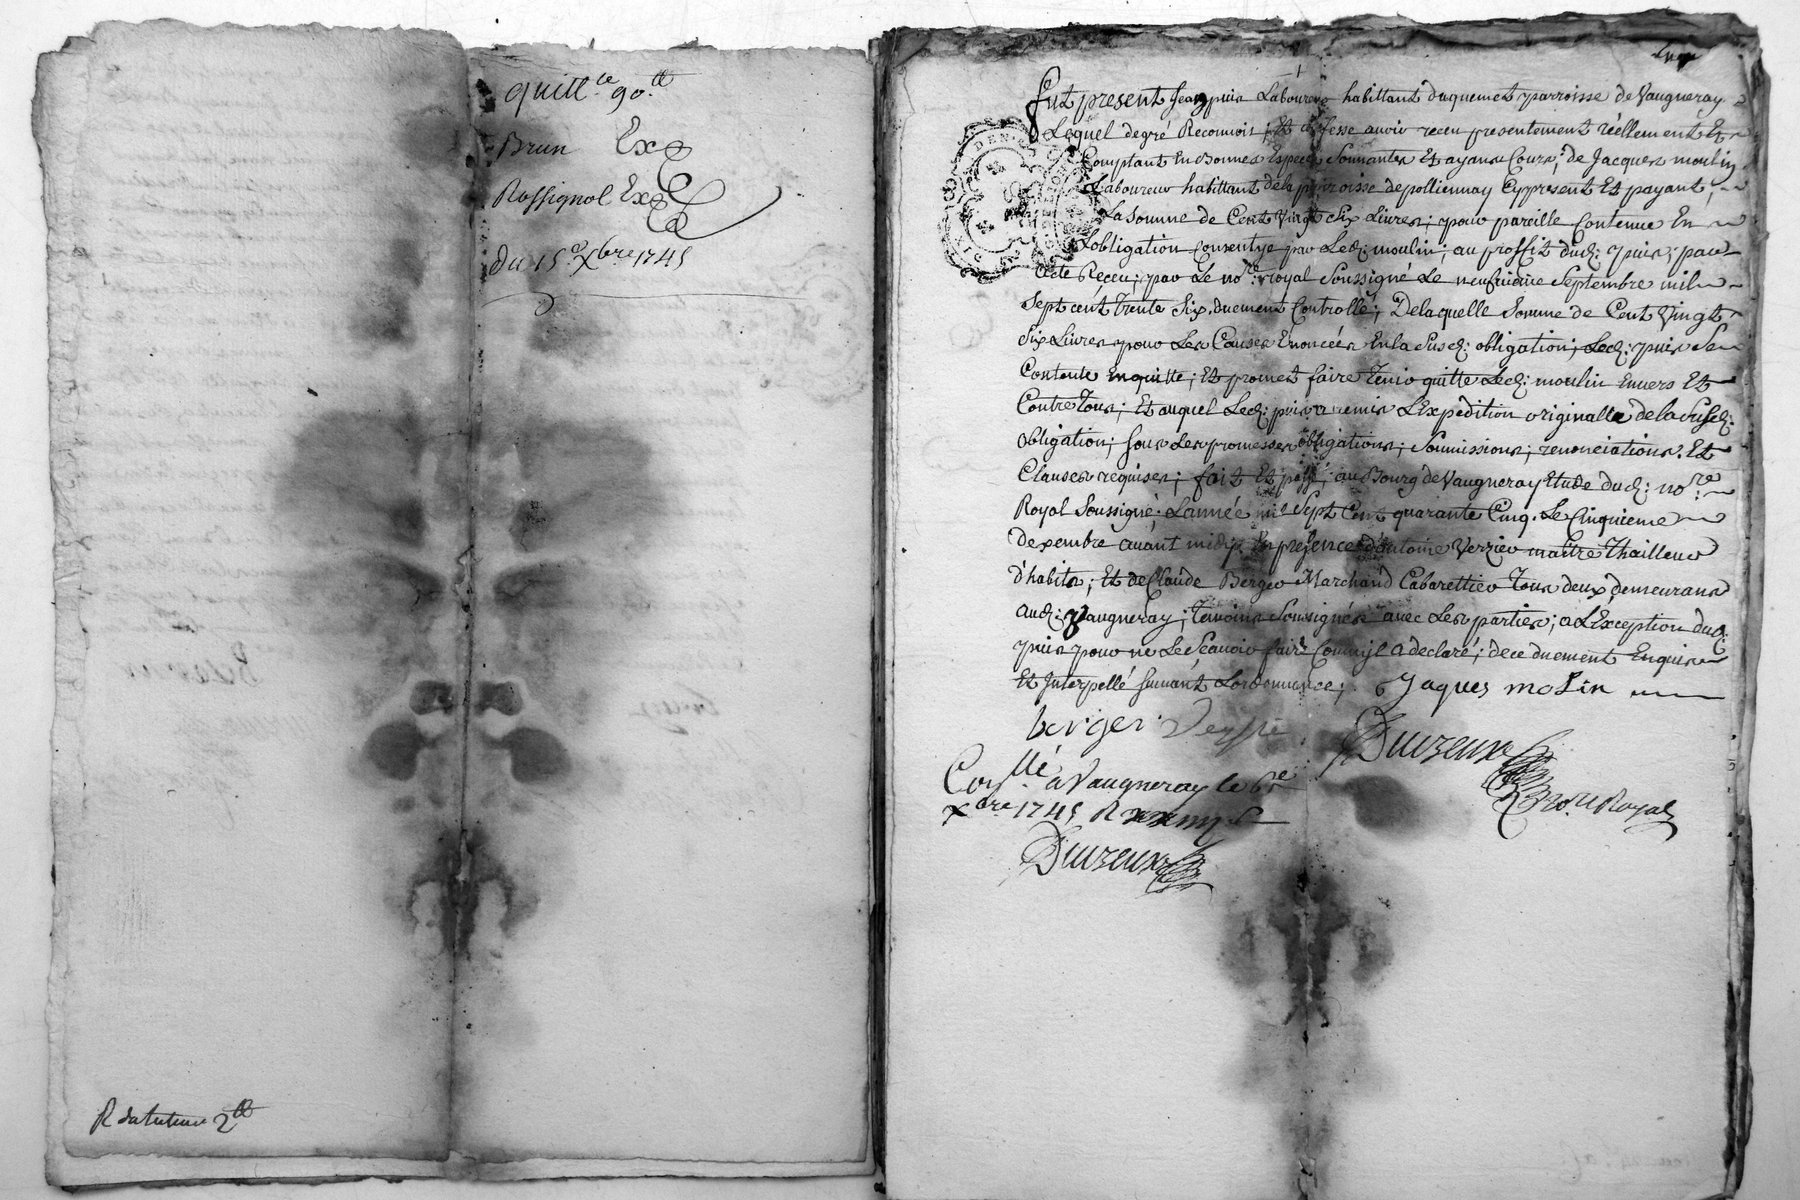 quitt.ce 90.tt
Brun Ex
Rossignol Ex
du 15e xbre 1745
R du tuteur 2tt
fut present Jean puis Laboureur habittant duquement parroisse de Vaugneray
Lequel degré Reconnois; Et confesse avoir receu presentement réellement Et
Comptant En bonnes Especes Sonnantes Et ayans Cours; de Jacques moulin
Laboureur habittant dela parroisse de polliennay Cypresent Et payant;
La somme de Cent Vingt Six Livres; pour pareille Contenue En
Lobligation Consentye par Led: moulin; au proffit dud: puis; par
acte Receu; par Le no.re Royal Soussigné Le neufvieme Septembre mil
Sept cent trente Six. duement Controllé; Delaquelle Somme de Cent Vingt
Six Livres pour Les Causes Enoncées En la Susd: obligation; Led: puis Se
Contente Enquitte; Et promet faire Tenir quitte Led: moulin Envers Et
Contre Tous; Et auquel Led: puis a remis LExpédition originalle de la Susd:
obligation; Sous Les promesses obligations; Soumissions; renonciations. Et
Clauses requises; fait Et passé; au Bourg de Vaugneray Etude dud: no.re
Royal Soussigné. Lannée mil Sept Cent quarante Cinq. Le Cinquieme
dexembre avant midy; En presence d'antoine Verzier maitre Thailleur
d'habits; Et de Claude Berger Marchand Cabarettier Tous deux demeurans
aud: Vaugneray; témoins Soussignés avec Les parties; a LException dud:
puis pour ne Le Scavoir faire Comm'jl a declaré; de ce duement Enquis
Et Interpellé Suivant Lordonnance; Jaques molin
berger
no.re Royal
Con.llé a Vaugneray le 6e
xbre 1745 R